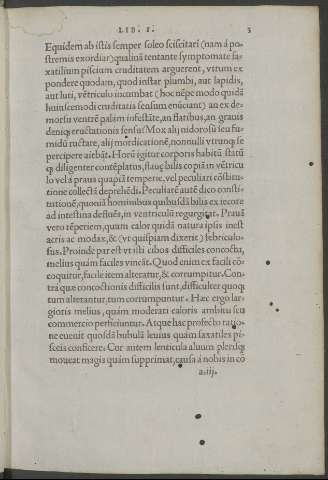 LIB. I. 3
Equidem ab istis semper soleo sciscitari (nam á po-
stremis exordiar) qualinã tentante symptomate sa-
xatilium piscium cruditatem arguerent, vtrum ex
pondere quodam, quod instar plumbi, aut lapidis,
aut luti, vẽtriculo incumbat (hoc nẽpe modo quidã
huiuscemodi cruditatis sensum enũciant) an ex de-
morsu ventrẽ palam infestãte, an flatibus, an grauis
deniq; eructationis sensu? Mox alij nidorosũ seu fu-
midũ ructare, alij mordicationẽ, nonnulli vtrunq; se
percipere aiebãt. Horũ igitur corporis habitũ statũ
q; diligenter contẽplatus, flauę bilis copiã in vẽtricu
lo vel à praua quapiã temperie, vel peculiari cõstitu-
tione collectã deprehẽdi. Peculiarẽ autẽ dico consti-
tutionẽ, quoniã hominibus quibusdã bilis ex iecore
ad intestina defluẽs, in ventriculũ regurgitat. Prauã
vero tẽperiem, quam calor quidã natura ipsis inest
acris ac modax, & (vt quispiam dixerit) febriculo-
sus. Proinde par est vt isti cibos difficiles concoctu,
melius quàm faciles vincãt. Quod enim ex facili cõ-
coquitur, facile item alteratur, & corrumpitur. Con-
trà quæ concoctionis difficilis sunt, difficulter quoq;
tum alterantur, tum corrumpuntur. Hæc ergo lar-
gioris melius, quàm moderati caloris ambitu seu
commercio perficiuntur. Atque hac profecto ratio-
ne euenit quosdã bubulã leuius quàm saxatiles pi-
sceis conficere. Cur autem lenticula aluum plerisq;
moueat magis quàm supprimat, causa à nobis in cõ
a.iij.